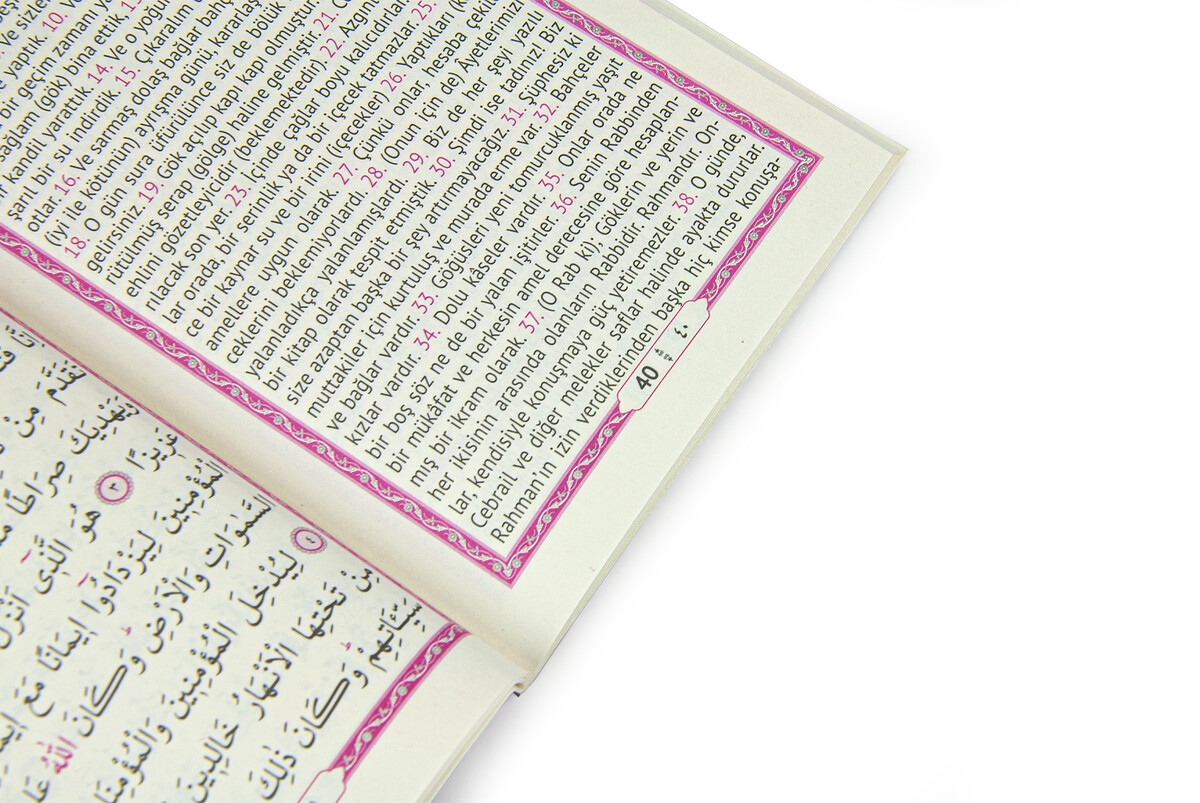 ve sizler
yaptık. 10. Ve
bir geçim zaman
sağlam (gök) bina ettik.
kandil yarattık. 14. Ve o yoğun
şarıl bir su indirdik. 15. Çıkaralım
otlar. 16. Ve sarmaş dolaş bağlar
(iyi ile kötünün) ayrışma günü,
18. O gün sura üfürülünce siz de bölük
gelirsiniz. 19. Gök açılıp kapı kapı olmuştur.
rütülmüş serap (gölge) haline gelmiştir. 21.
ehlini gözetleyicidir (beklemektedir) 22.
rılacak son yer. 23. İçinde çağlar boyu kalıcıdırlar
lar orada, bir serinlik ya da bir içecek tatmazlar. 25.
ce bir kaynar su ve bir irini (çecekler) 26. Yaptıkları
amellere uygun olarak. 27. Çünkü onlar hesaba çekil
ceklerini beklemiyorlardı. 28. (Onun için de) Âyetlerimizi
yalanladıkça yalanlamışlardı. 29. Biz de her şeyi yazılı
bir kitap olarak tespit etmiştik. 30. Şimdi ise tadınız! Biz
size azaptan başka bir şey artırmayacağız. 31. Şüphesiz ki
muttakiler için kurtuluş ve murada erme var. 32. Bahçeler
ve bağlar vardır. 33. Göğüsleri yeni tomurcuklanmış yaşıt
kızlar vardır. 34. Dolu kâseler vardır. 35. Onlar orada ne
bir boş söz ne de bir yalan işitirler. 36. Senin Rabbinden
bir mükâfat ve herkesin amel derecesine göre hesaplan-
mış bir ikram olarak. 37. (O Rab ki), Göklerin ve yerin ve
her ikisinin arasında olanların Rabbidir. Rahmandır. On-
lar, kendisiyle konuşmaya güç yetiremezler. 38. O günde,
Cebrail ve diğer melekler saflar halinde ayakta dururlar
Rahman'ın izin verdiklerinden başka hiç kimse konuşa-
40 ٤٠
تَقَدَّمَ مِنْ
وَيَهْدِيَكَ صِرَاطًا
عَزِيزًا ٣ هُوَ الَّذِى اَنْزَلَ
الْمُؤْمِنِينَ لِيَزْدَادُوا اِيمَانًا مَعَ
السَّمٰوَاتِ وَالْاَرْضِ وَكَانَ اللّٰهُ
٤ لِيُدْخِلَ الْمُؤْمِنِينَ
مِنْ تَحْتِهَا الْاَنْهَارُ خَالِدِينَ
سَيِّـَٔاتِهِمْ وَكَانَ ذٰلِكَ